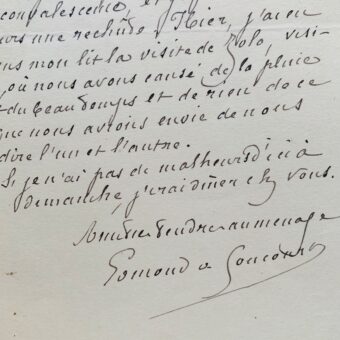 convalescence, et
jours une rechûte. Hier, j'ai eu
dans mon lit la visite de Zola, visi-
, où nous avons causé de la pluie
et du beau temps et de rien de ce
que nous avions envie de nous
dire l'un et l'autre.
Si je n'ai pas de malheurs d'ici à
demanche, j'irai dîner chez vous.
Amitié tendre au ménage
Edmond de Goncourt